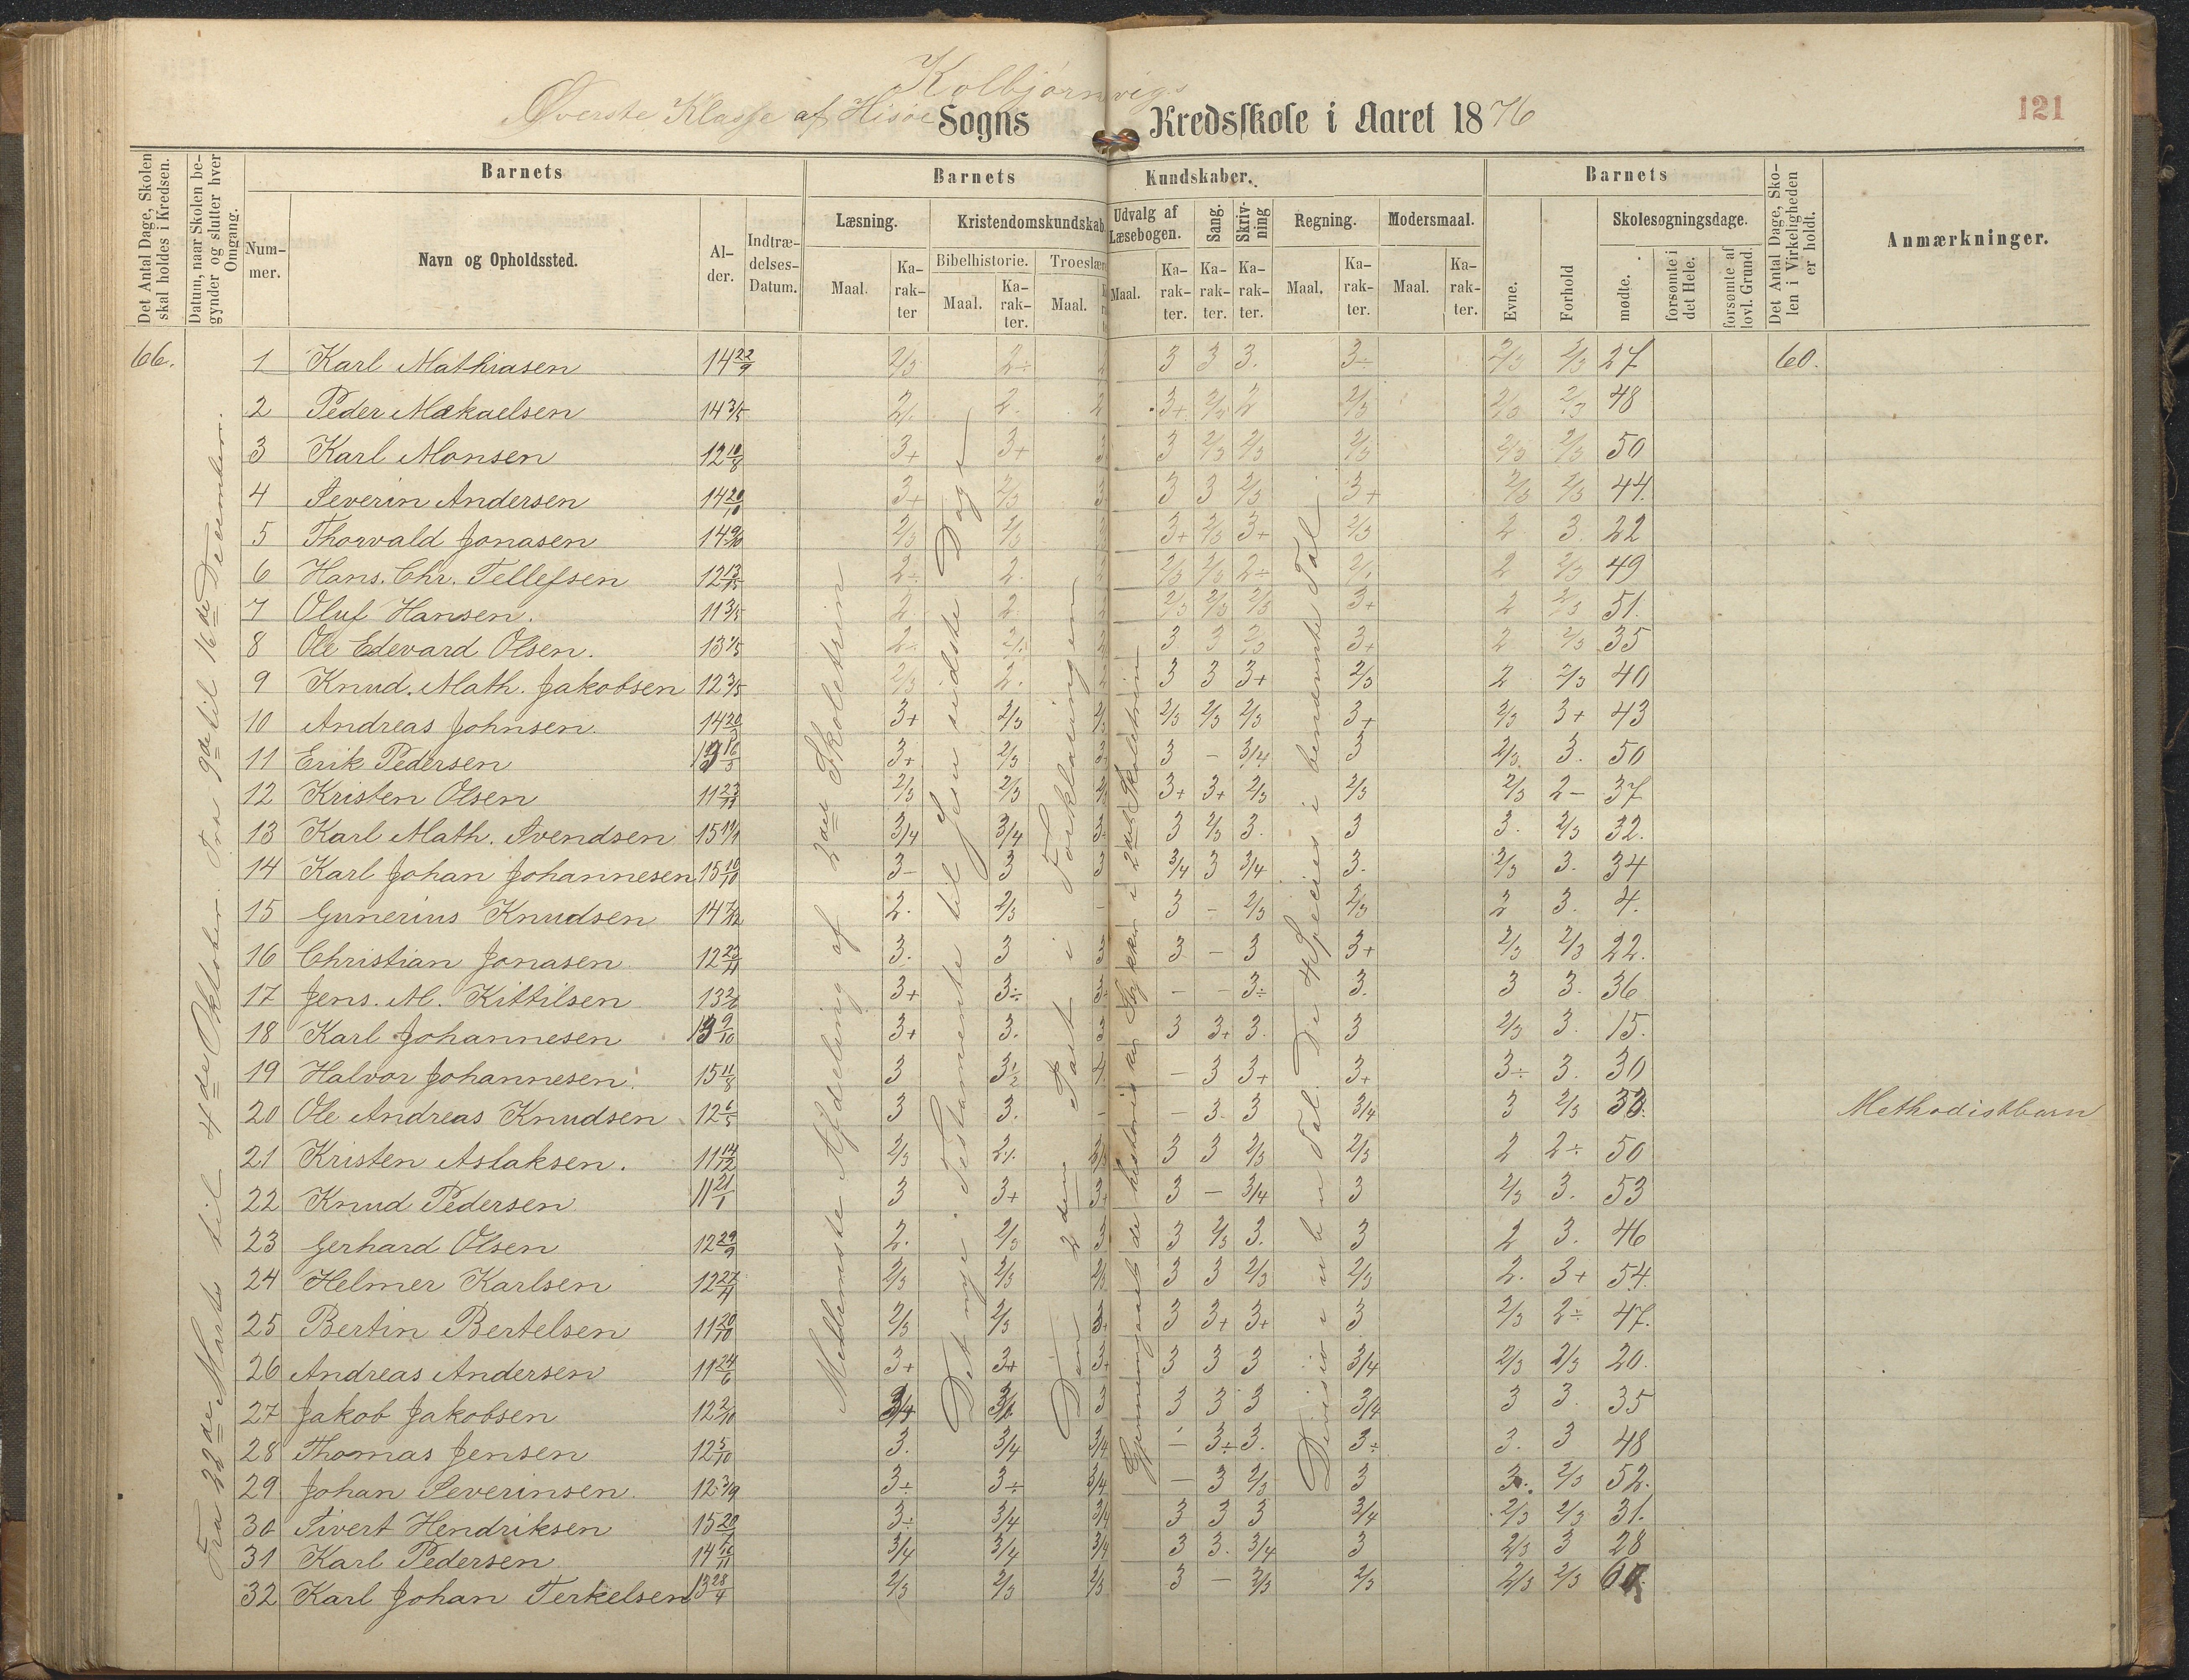 Kolbjørnsvigs
Øverste Klasse af Hisøe Sogns Kredsskole i Aaret 1876
121
Det Antal Dage, Skolen skal holdes i Kredsen.
Datum, naar Skolen begynder og slutter hver Omgang.
Barnets
Barnets Kundskaber.
Barnets
Det Antal Dage, Skolen i Virkeligheden er holdt.
Anmærkninger.
Nummer.
Navn og Opholdssted.
Alder.
Indtrædelses-Datum.
Læsning.
Kristendomskundskab.
Udvalg af Læsebogen.
Sang.
Skrivning
Regning.
Modersmaal.
Evne.
Forhold
Skolesøgningsdage.
Bibelhistorie.
Troeslære
Maal.
Karakter
Maal.
Karakter.
Maal.
Maal.
Karakter.
Karakter.
Karakter.
Maal.
Karakter.
Maal.
Karakter.
mødte.
forsømte i det Hele.
forsømte af lovl. Grund.
66.
60.
Fra 22de Marts til 4de Oktober. Fra 9de til 16de December.
Mellemste Afdeling af 2det Skoletrin
Det nye Testamente til Jesu sidste Dage
Den 2den Part i Forklaringen
Gjennemgaaet de historiske Stykker i 2det Skoletrin
Division i ubn Tal. De 4 Species i benævnte Tal
1 Karl Mathiasen 14 22/9 2/3 2÷ 3 3 3. 3÷ 2/3 2/3 27
2 Peder Mækaelsen 14 3/5 2/. 2. 2 3+ 2/3 2 2/3 2/3 2/3 48
3 Karl Monsen 12 10/8 3+ 3+ 3 3 2/3 2/3 2/3 2/3 2/3 50
4 Severin Andersen 14 20/10 3+ 2/3 3 3 3 2/3 3+ 2/3 2/3 44.
5 Thorvald Jonasen 14 9/10 2/3 2/3 3+ 2/3 3+ 2/3 2 3. 22
6 Hans. Chr. Tellefsen 12 2÷ 2. 2/3 2/3 2÷ 2/. 2 2/3 49
7 Oluf Hansen. 11 3/5 2. 2. 2/3 2/3 2/3 3+ 2 2/3 51.
8 Ole Edevard Olsen. 13 1/5 2÷ 2/. 3 3 2/3 3+ 2 2/3 35
9 Knud. Math. Jakobsen 12 3/5 2/3 2. 3 3 3+ 2/3 2 2/3 40
10 Andreas Johnsen. 14 3+ 2/3 2/3 2/3 2/3 2/3 3+ 2/3 3+ 43
11 Erik Pedersen 3+ 2/3 3 3 - 3/4 3 2/3. 3. 50
12 Kristen Olsen 11 23/11 2/3 2/3 2/3 3+ 3+ 2/3 2/3 2/3 2- 37
13 Karl Math. Svendsen 15 3/4 3/4 3 3 2/3 3. 3 3. 2/3 32.
14 Karl Johan Johannesen 15 10/10 3- 3 3 3/4 3 3/4 3. 2/3 3. 34
15 Gunerius Knudsen 14 7/12 2. 2/3 - 3 - 2/3 2/3 2 3. 4.
16 Christian Jonasen 12 22/11 3. 3 3 3 - 3 3+ 2/3 2/3 22.
17 Jens. M. Kittilsen 13 2/6 3+ 3÷ 3 - - 3÷ 3. 3 3. 36
18 Karl Johannesen 13 9/10 3+ 3. 3 3 3+ 3. 3 2/3 3. 15.
19 Halvor Johannesen. 15 11/8 3 3½ 4. - 3 3+ 3+ 3÷ 3. 30
20 Ole Andreas Knudsen 12 6/5 3 3. - - 3 3 3/4 3 2/3 33. Methodistbarn
21 Kristen Aslaksen. 11 14/12 2/3 2/. 2/3 3 3 2/3 2/3 2 2÷ 50
22 Knud Pedersen 11 21/1 3 3+ 3+ 3 - 3/4 3 2/3 3. 53
23 Gerhard Olsen 12 29/9 2. 2/3 3 3 2/3 3. 3 2 3. 46
24 Helmer Karlsen 12 27/11 2/3 2/3 2/3 3 3 2/3 2/3 2. 3+ 54.
25 Bertin Bertelsen 11 20/10 2/3 2/3 3+ 3 3+ 3+ 3 2/3 2÷ 47.
26 Andreas Andersen 11 24/6 3+ 3+ 3+ 3 3 3 3/4 2/3 2/3 20.
27 Jakob Jakobsen 12 2/10 3/4 3 3 3 3 3/4 3 3. 35
28 Thomas Jensen 12 5/10 3. 3/4 3/4 - 3÷ 3. 3÷ 3. 3 48
29 Johan Severinsen 12. 3/9 3÷ 3÷ 3/4 - 3 2/3 3 3. 2/3 52.
30 Sivert Hendriksen 15 3÷ 3/4 3/4 3 3 3 3/4 2/3 2/3 31.
31 Karl Pedersen 14 3/4 3/4 3/4 3 3. 3/4 3 2/3 3 28
32 Karl Johan Terkelsen 13 28/4 2/3 2/3 2/3 3 - 2/3 2/3 2/3 2/3